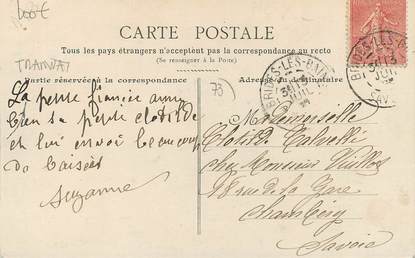 100€
TRAMWAY
CARTE POSTALE
Tous les pays étrangers n'acceptent pas la correspondance au recto
(Se renseigner à la Poste)
Partie réservée à la correspondance
Adresse du destinataire
73
BRIDES-LES-BAINS
La petite fiancée
bien sa petite Clotilde
et lui envoi beaucoup
de baisers
Suzanne
Mademoiselle
Clotilde
chez Monsieur
18 rue de la Gare
Chambéry
Savoie